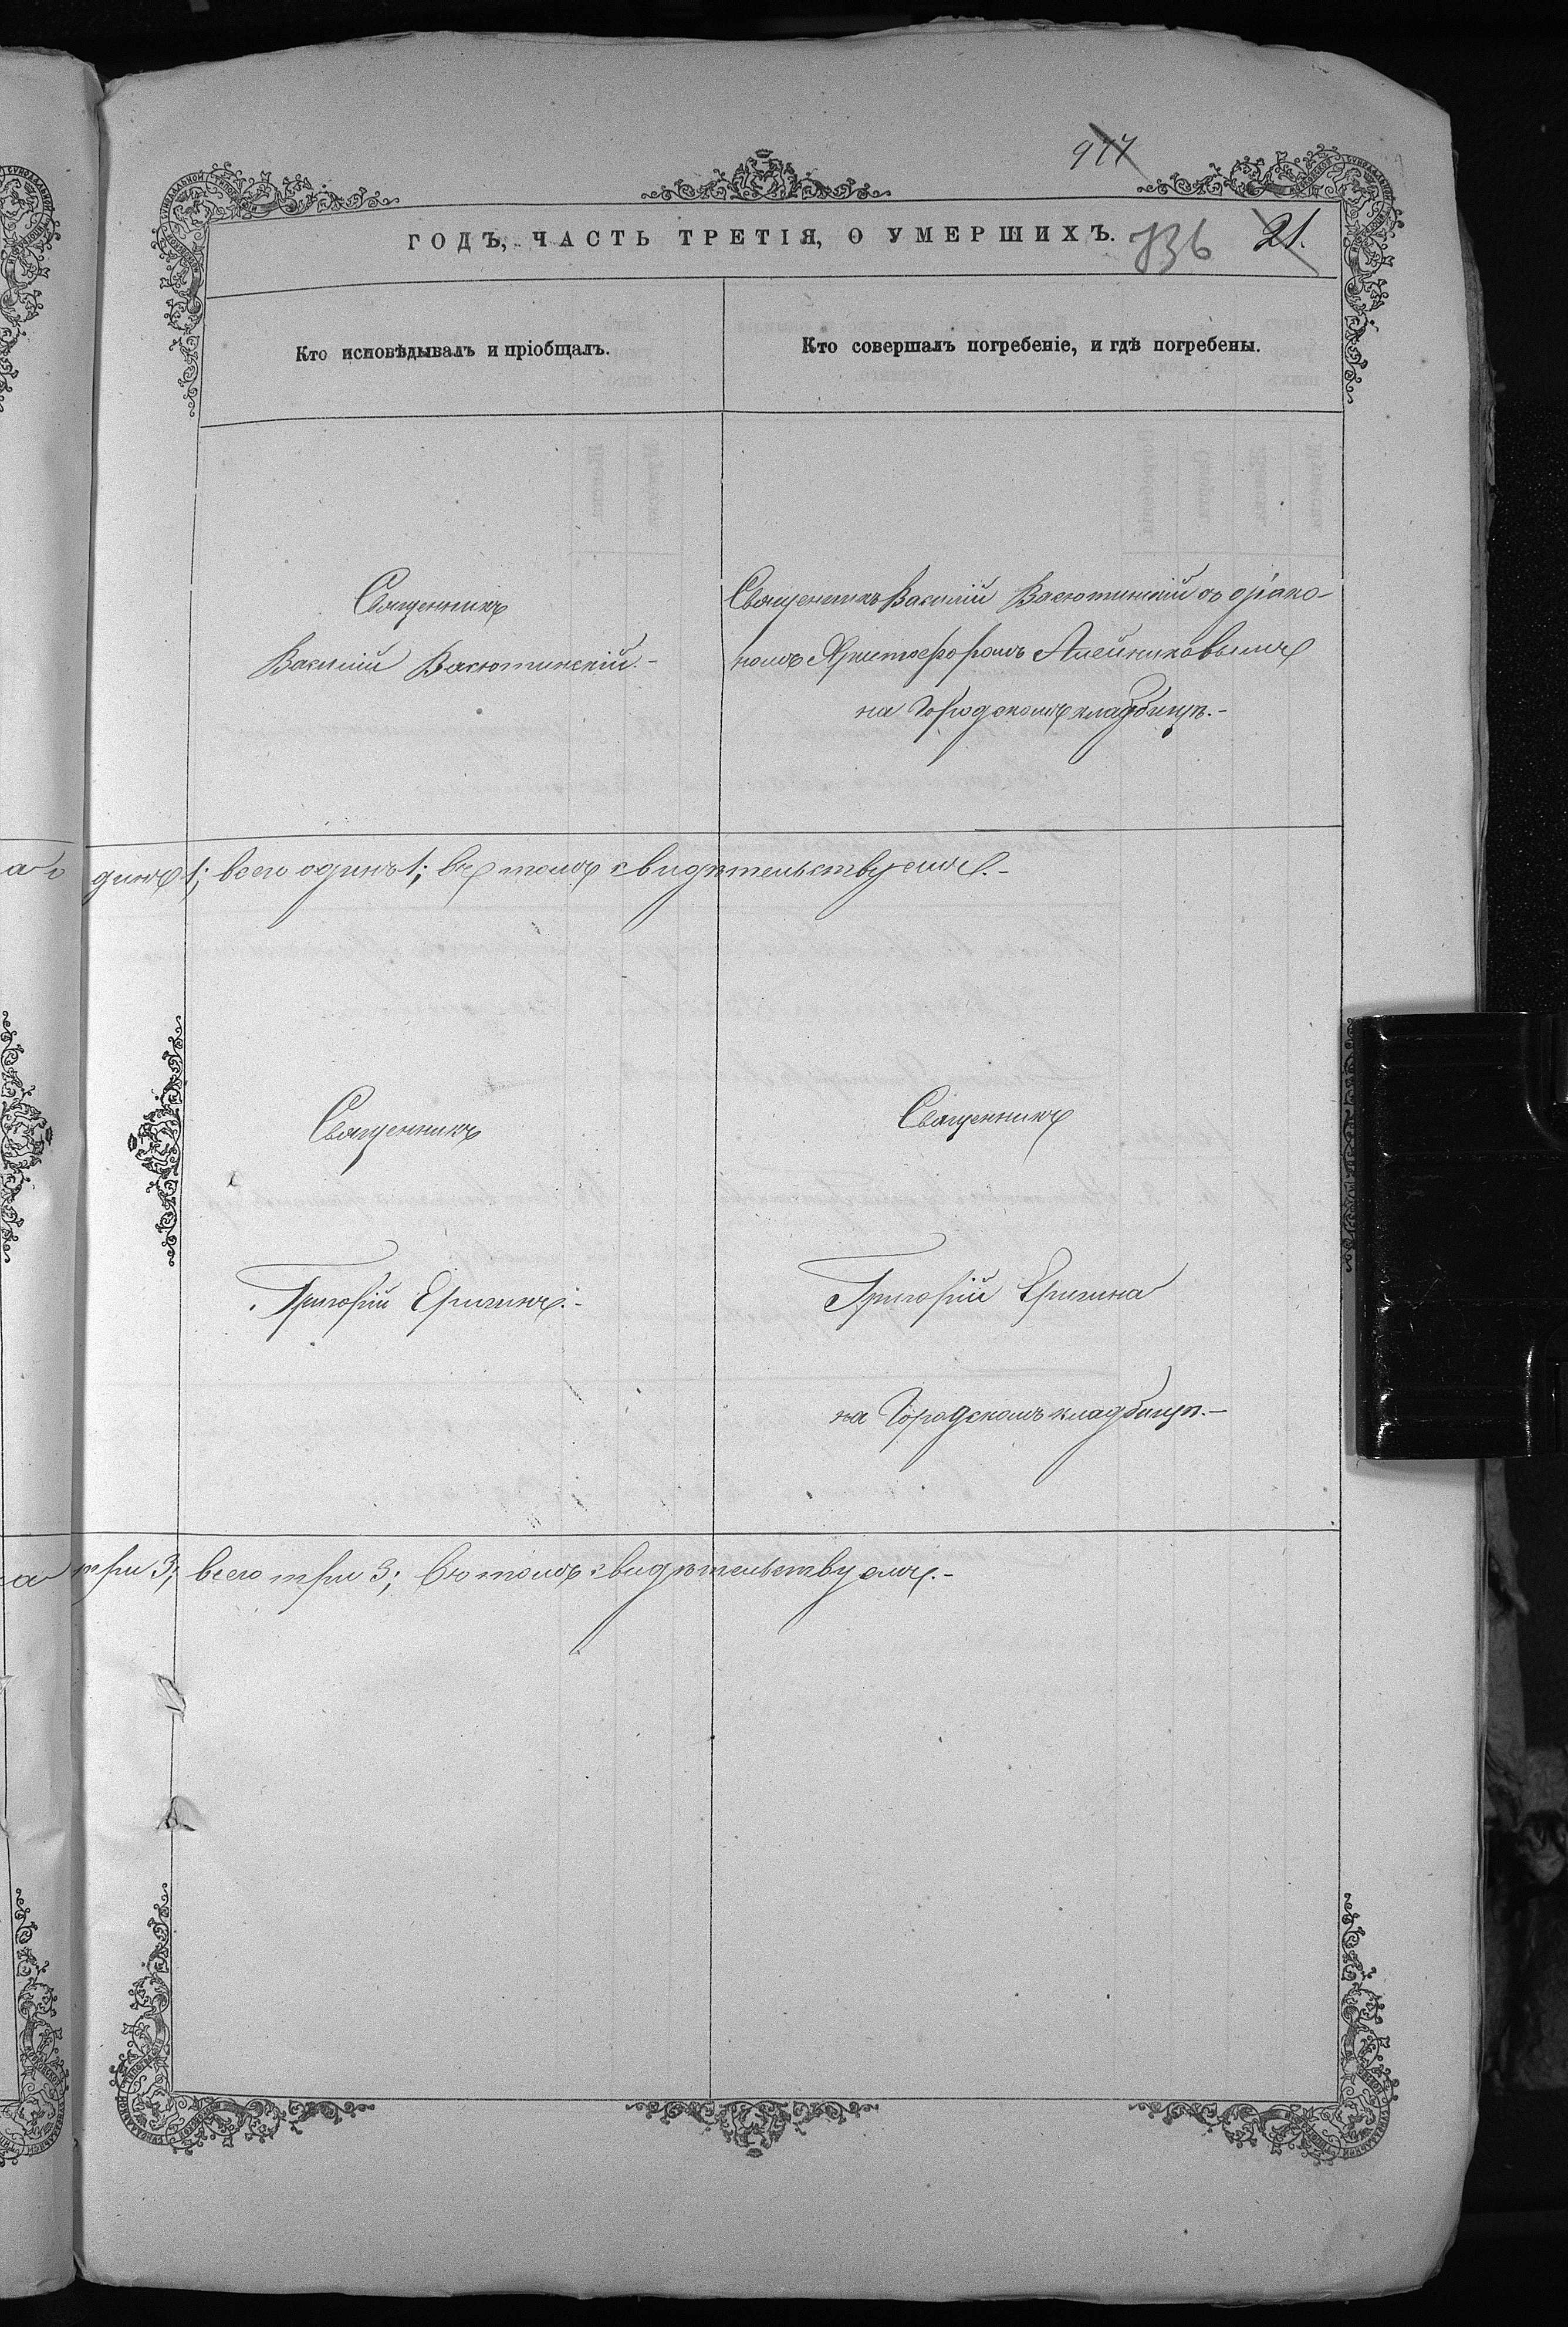 977
ГОДЪ, ЧАСТЬ ТРЕТІЯ, О УМЕРШИХЪ.
736 21.
Кто исповѣдывалъ и пріобщалъ.
Кто совершалъ погребеніе, и гдѣ погребены.
Священникъ
Василій Васютинскій.-
Священникъ Василій Васютинскій съ діако-
номъ Христофоромъ Алейниковымъ
на Городскомъ кладбищѣ.-
динъ 1; всего одинъ 1; въ томъ свидѣтельствуемъ.-
Священникъ
Григорій Еригинъ.-
Священникъ
Григорій Еригина
на Городскомъ кладбищѣ.-
три 3; всего три 3; въ томъ свидѣтельствуемъ.-